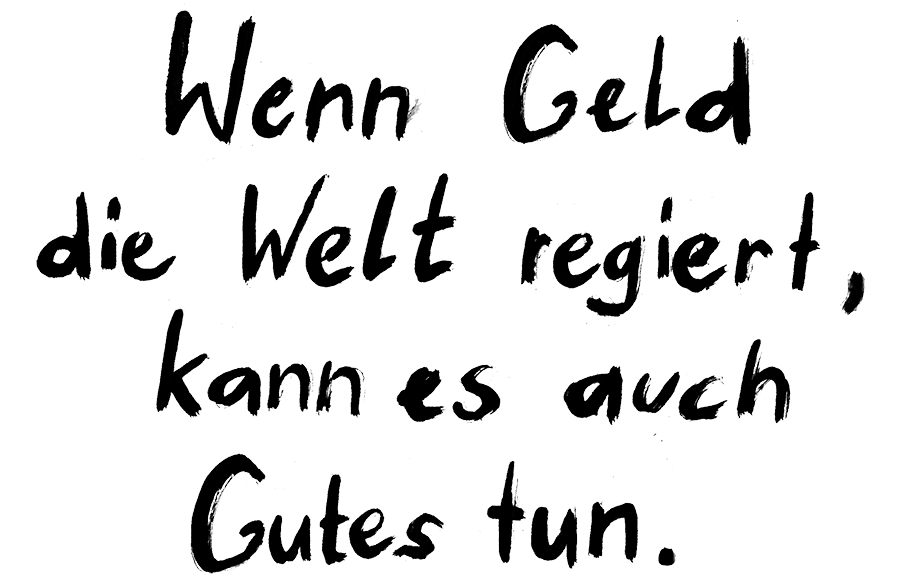 Wenn Geld
die Welt regiert,
kann es auch
Gutes tun.